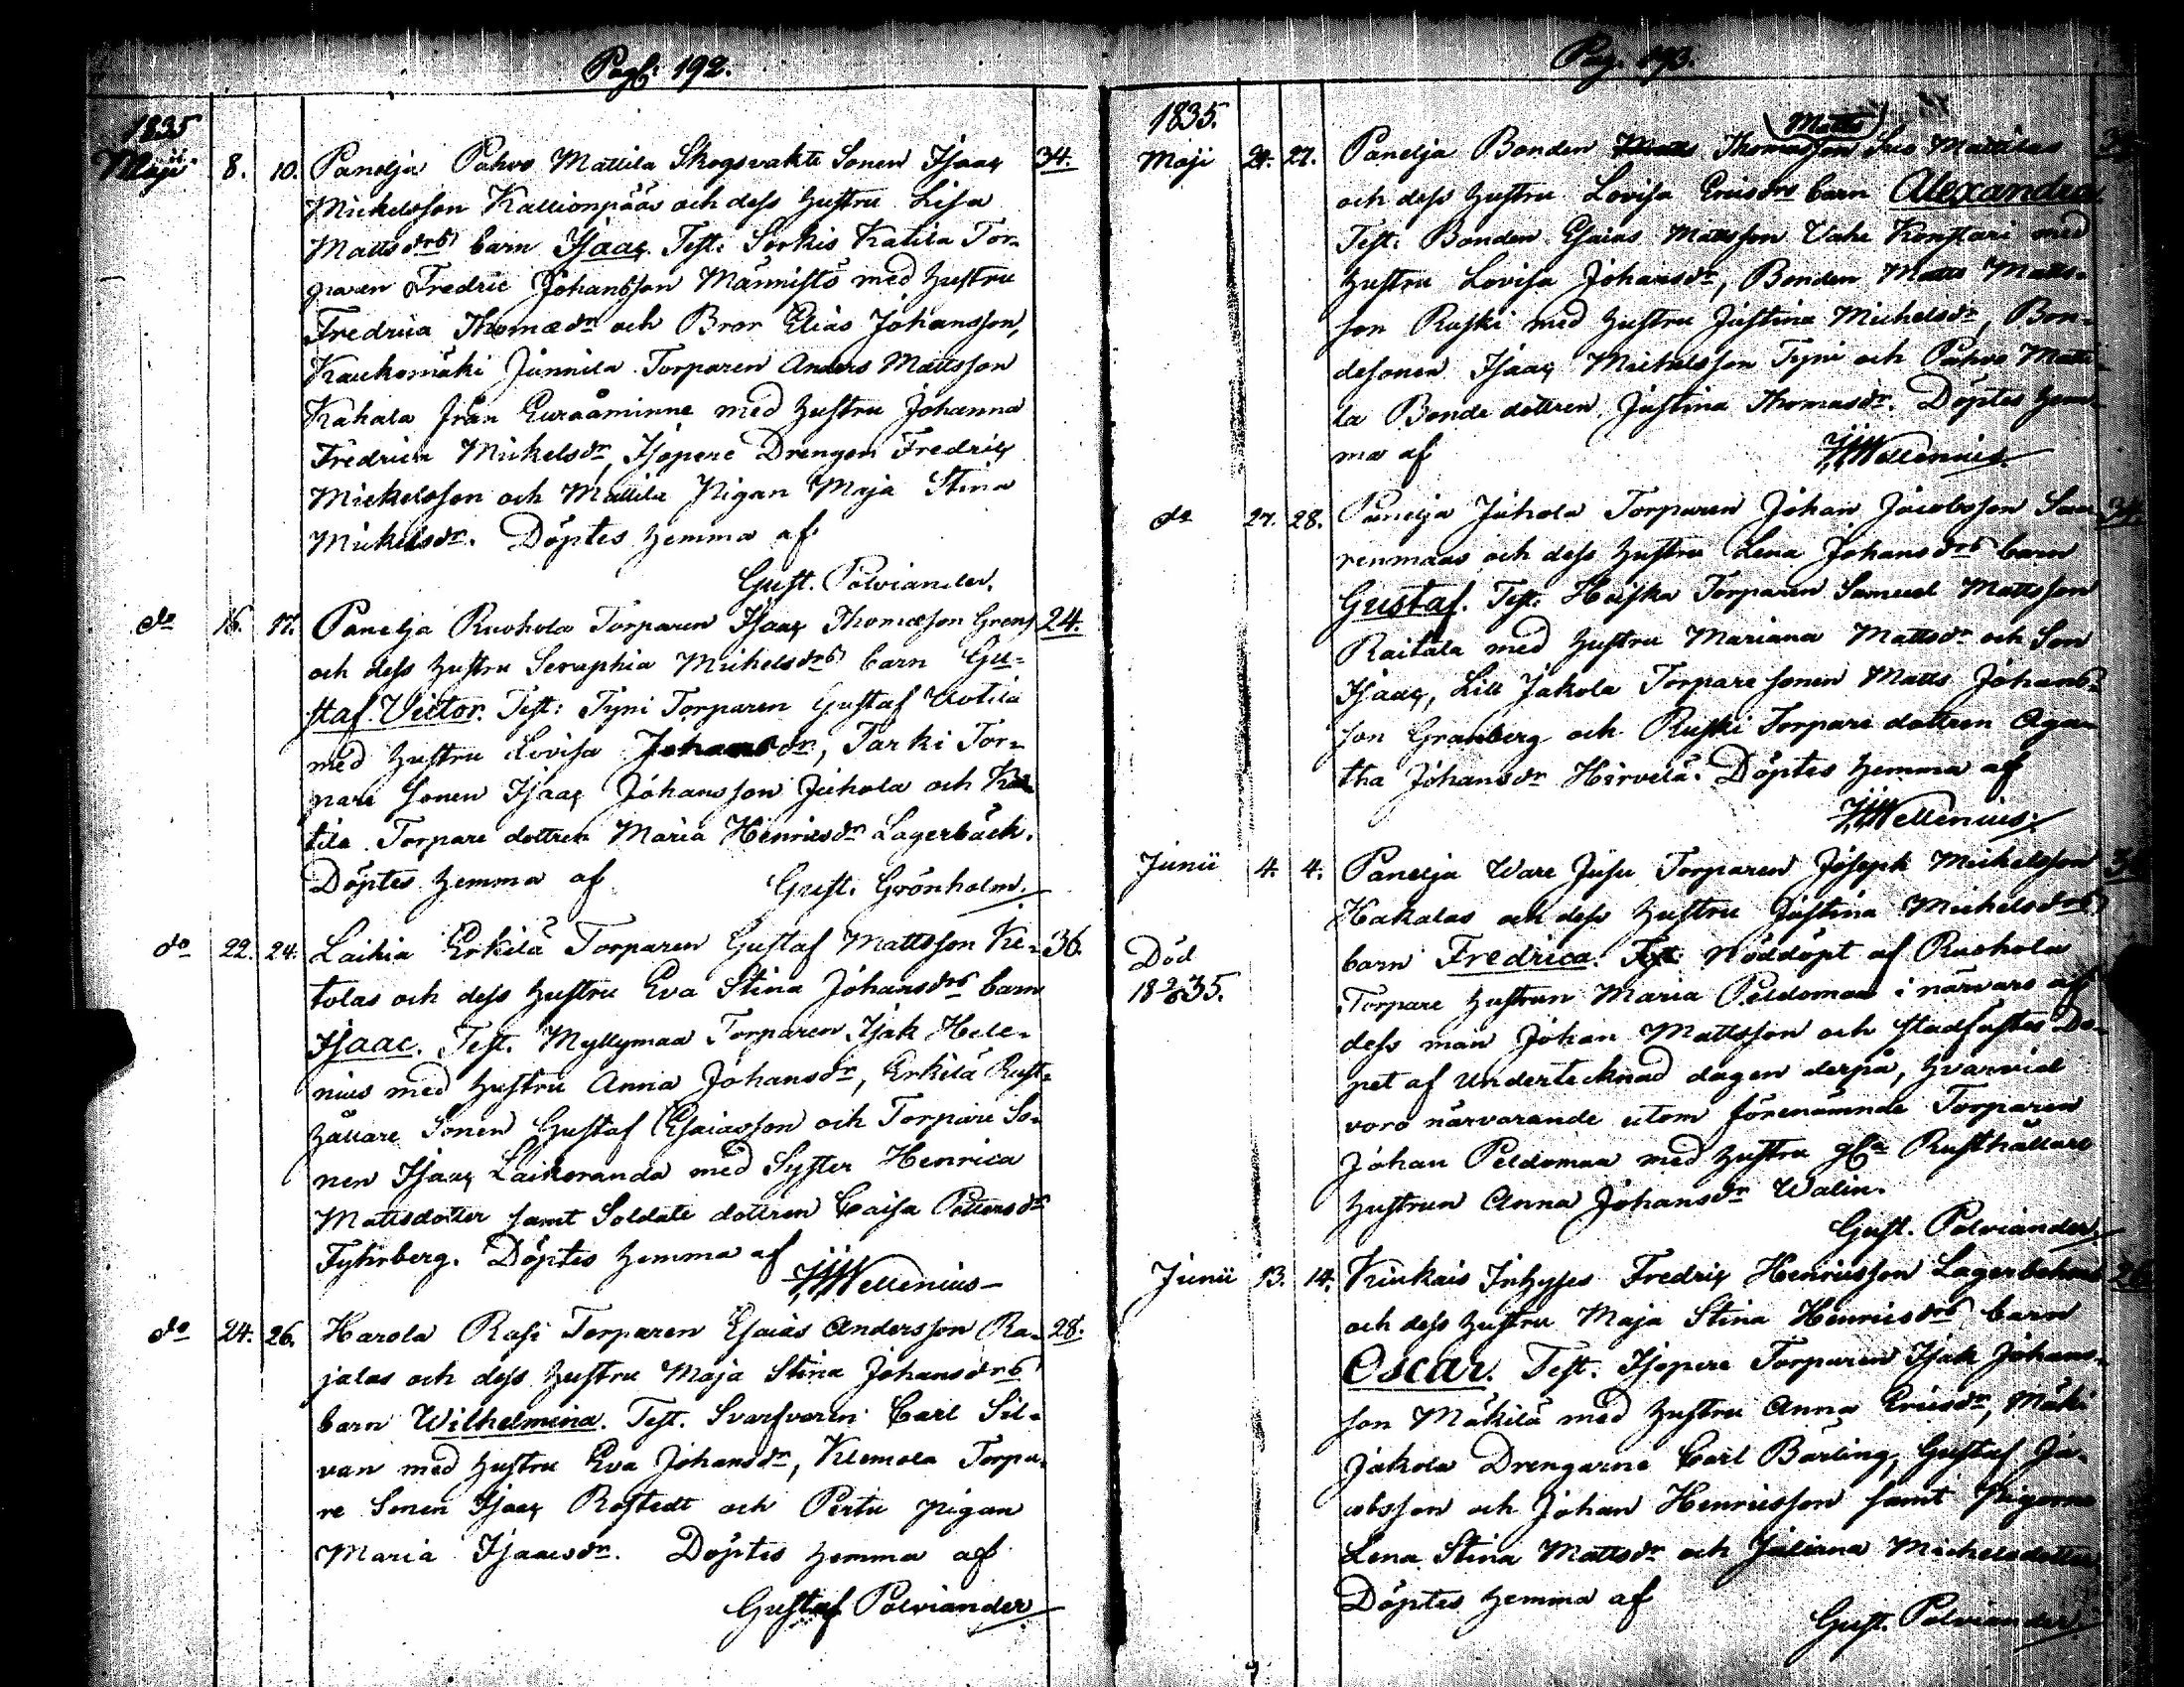 Pag: 192.
1835
Maji 8. 10. Panelja Pahvo Mattila Skogsvakts Sonen Isaac 34.
Mickelsson Kallionpääs och dess hustru Lisa
Mattsdrs barn Isaac. Test. Sorkis Katila Tor-
paren Fredric Johansson Männistö med hustru
Fredrica Thomædr och Bror Elias Johansson,
Kaukomäki Junnila Torparen Anders Mattsson
Kahala från Euraåminne med hustru Johanna
Fredrica Mickelsdr, Isopere Drengen Fredric
Mickelsson och Mattila Pigan Maja Stina
Mickelsdr. Döptes hemma af
Gust. Polviander.
do 16. 17. Panelja Ruohola Torparen Isaac Thomæson Grens 24.
och dess hustru Seraphia Michelsdrs barn Gu-
staf Victor. Test: Tyni Torparen Gustaf Uotila
med hustru Lovisa Johansdr, Tarki Tor-
pare sonen Isaac Johansson Juhola och Ka-
tila Torpare dottren Maria Henricsdr Lagerbäck.
Döptes hemma af Gust. Grönholm.
do 22. 24. Laihia Erkilä Torparen Gustaf Mattsson Ke- 36.
tolas och dess hustru Eva Stina Johansdrs barn
Isaac. Test. Myllymaa Torparen Isak Hele-
nius med hustru Anna Johansdr, Erkilä Rust-
hållare Sonen Gustaf Esaiasson och Torpare So-
nen Isaac Laikoranda med Syster Henrica
Mattsdotter samt Soldats dottren Caisa Pettersdr
Fyhrberg. Döptes hemma af
Wellenius
do 24. 26. Harola Rasi Torparen Esaias Andersson Ra- 28.
jalas och dess hustru Maja Stina Johansdrs
barn Wilhelmina. Test. Svarfvaren Carl Sil-
van med hustru Eva Johansdr, Klemola Torpa-
re Sonen Isaac Rostedt och Pertu pigan
Maria Isaacsdr. Döptes hemma af
Gustaf Polviander
Pag. 193.
1835.
Matts
Maji 24. 27. Panelja Bonden Matts Thomasson Suo Mattilas
och dess hustru Lovisa Ericsdrs barn Alexandra
Test. Bonden Esaias Mattsson Vahe Konstari med
hustru Lovisa Johansdr, Bonden Matts Matts-
son Ruski med hustru Justina Michelsdr, Bon-
desonen Isaac Michelsson Tyni och Pahvo Matti-
la Bonde dottren Justina Thomasdr. Döptes hem-
ma af Wellenius
do 27. 28. Panelja Juhola Torparen Johan Jacobsson Saa- 34.
renmaas och dess hustru Lena Johansdrs barn
Gustaf. Test. Heiska Torparen Samuel Mattsson
Raitala med hustru Mariana Mattsdr och Son
Isaac, Lill Jakola Torpare sonen Matts Johans-
son Granberg och Ruski Torpare dottren Aga-
tha Johansdr Hirvelä. Döptes hemma af
Wellenius
Junii 4. 4. Panelja Ware Jusu Torparen Joseph Michelsson
Hakalas och dess hustru Justina Michelsdrs
Död barn Fredrica. Test. Nöddöpt af Ruohola
18 35. Torpare hustrun Maria Peldomaa i närvaro af
dess man Johan Mattsson och stadfästes Do-
pet af undertecknad dagen derpå, hvarvid
voro närvarande utom förenämnde Torparen
Johan Peldomaa med hustru Rusthållare
hustrun Anna Johansdr Walin.
Gust. Polviander.
Junii 13. 14. Kiukais Inhyses Fredric Henricsson Lagerbohms
och dess hustru Maja Stina Henricsdrs barn
Oscar. Test. Isopere Torparen Isak Johans-
son Mäkilä med hustru Anna Ericsdr, Mäki
Jakola Drengarne Carl Bärling, Gustaf Ja-
cobsson och Johan Henricsson samt Pigorna
Lena Stina Mattsdr och Juliana Michelsdotter
Döptes hemma af
Gust. Polviander.